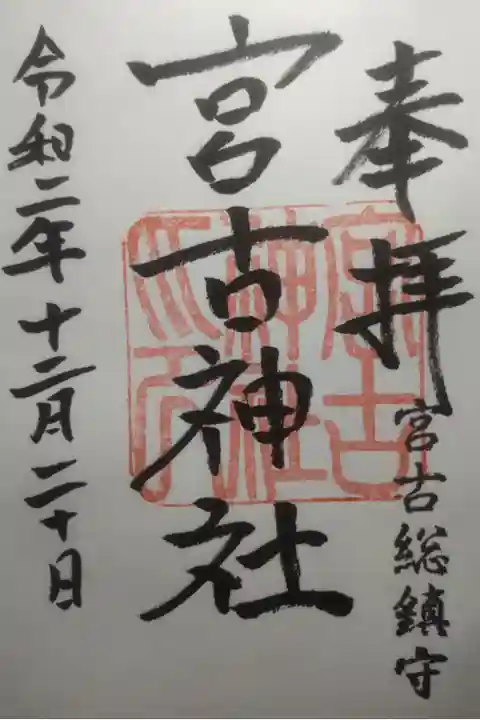 奉拝
宮古総鎮守
宮古神社
宮古
神社
之印
令和二年十二月二十日